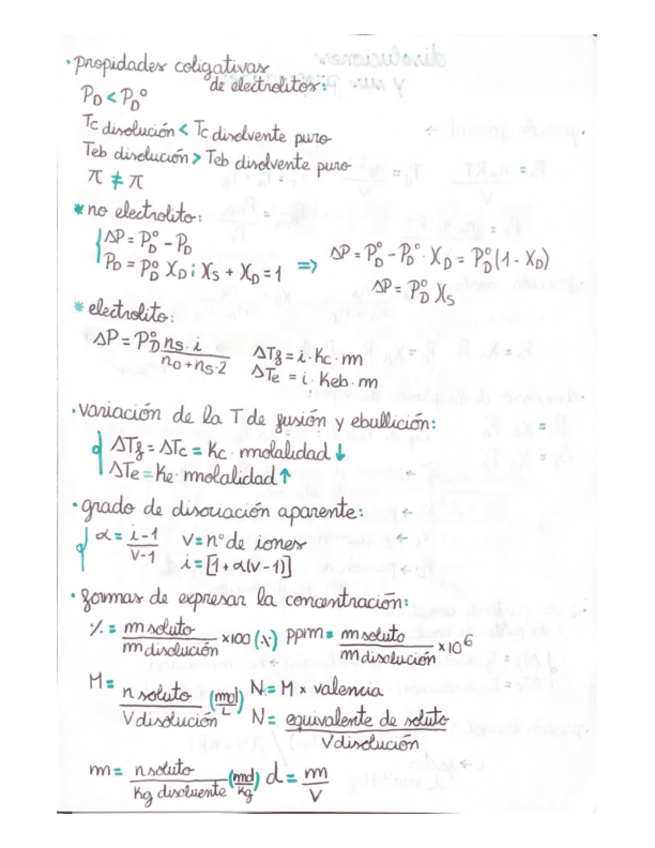 • propidades coligativas
de electrolitos:
P_D < P_D°
Tc disolución < Tc disolvente puro
Teb disolución > Teb disolvente puro
π ≠ π
* no electrolito:
ΔP = P_D° - P_D
P_D = P_D° X_D ; X_S + X_D = 1 ⇒ ΔP = P_D° - P_D° · X_D = P_D° (1 - X_D)
ΔP = P_D° X_S
* electrolito:
ΔP = P_D° n_S · i / n_0 + n_S · 2
ΔT_f = i · Kc · m
ΔTe = i · Keb · m
• variación de la T de fusión y ebullición:
ΔT_f = ΔTc = Kc · molalidad ↓
ΔTe = Ke · molalidad ↑
• grado de disociación aparente:
α = i - 1 / V - 1 V = n° de iones
i = [1 + α(V - 1)]
• formas de expresar la concentración:
% = m soluto / m disolución × 100 (%) ppm = m soluto / m disolución × 10^6
M = n soluto / V disolución (mol/L) N = M × valencia
N = equivalente de soluto / V disolución
m = n soluto / Kg disoluente (mol/Kg) d = m / V